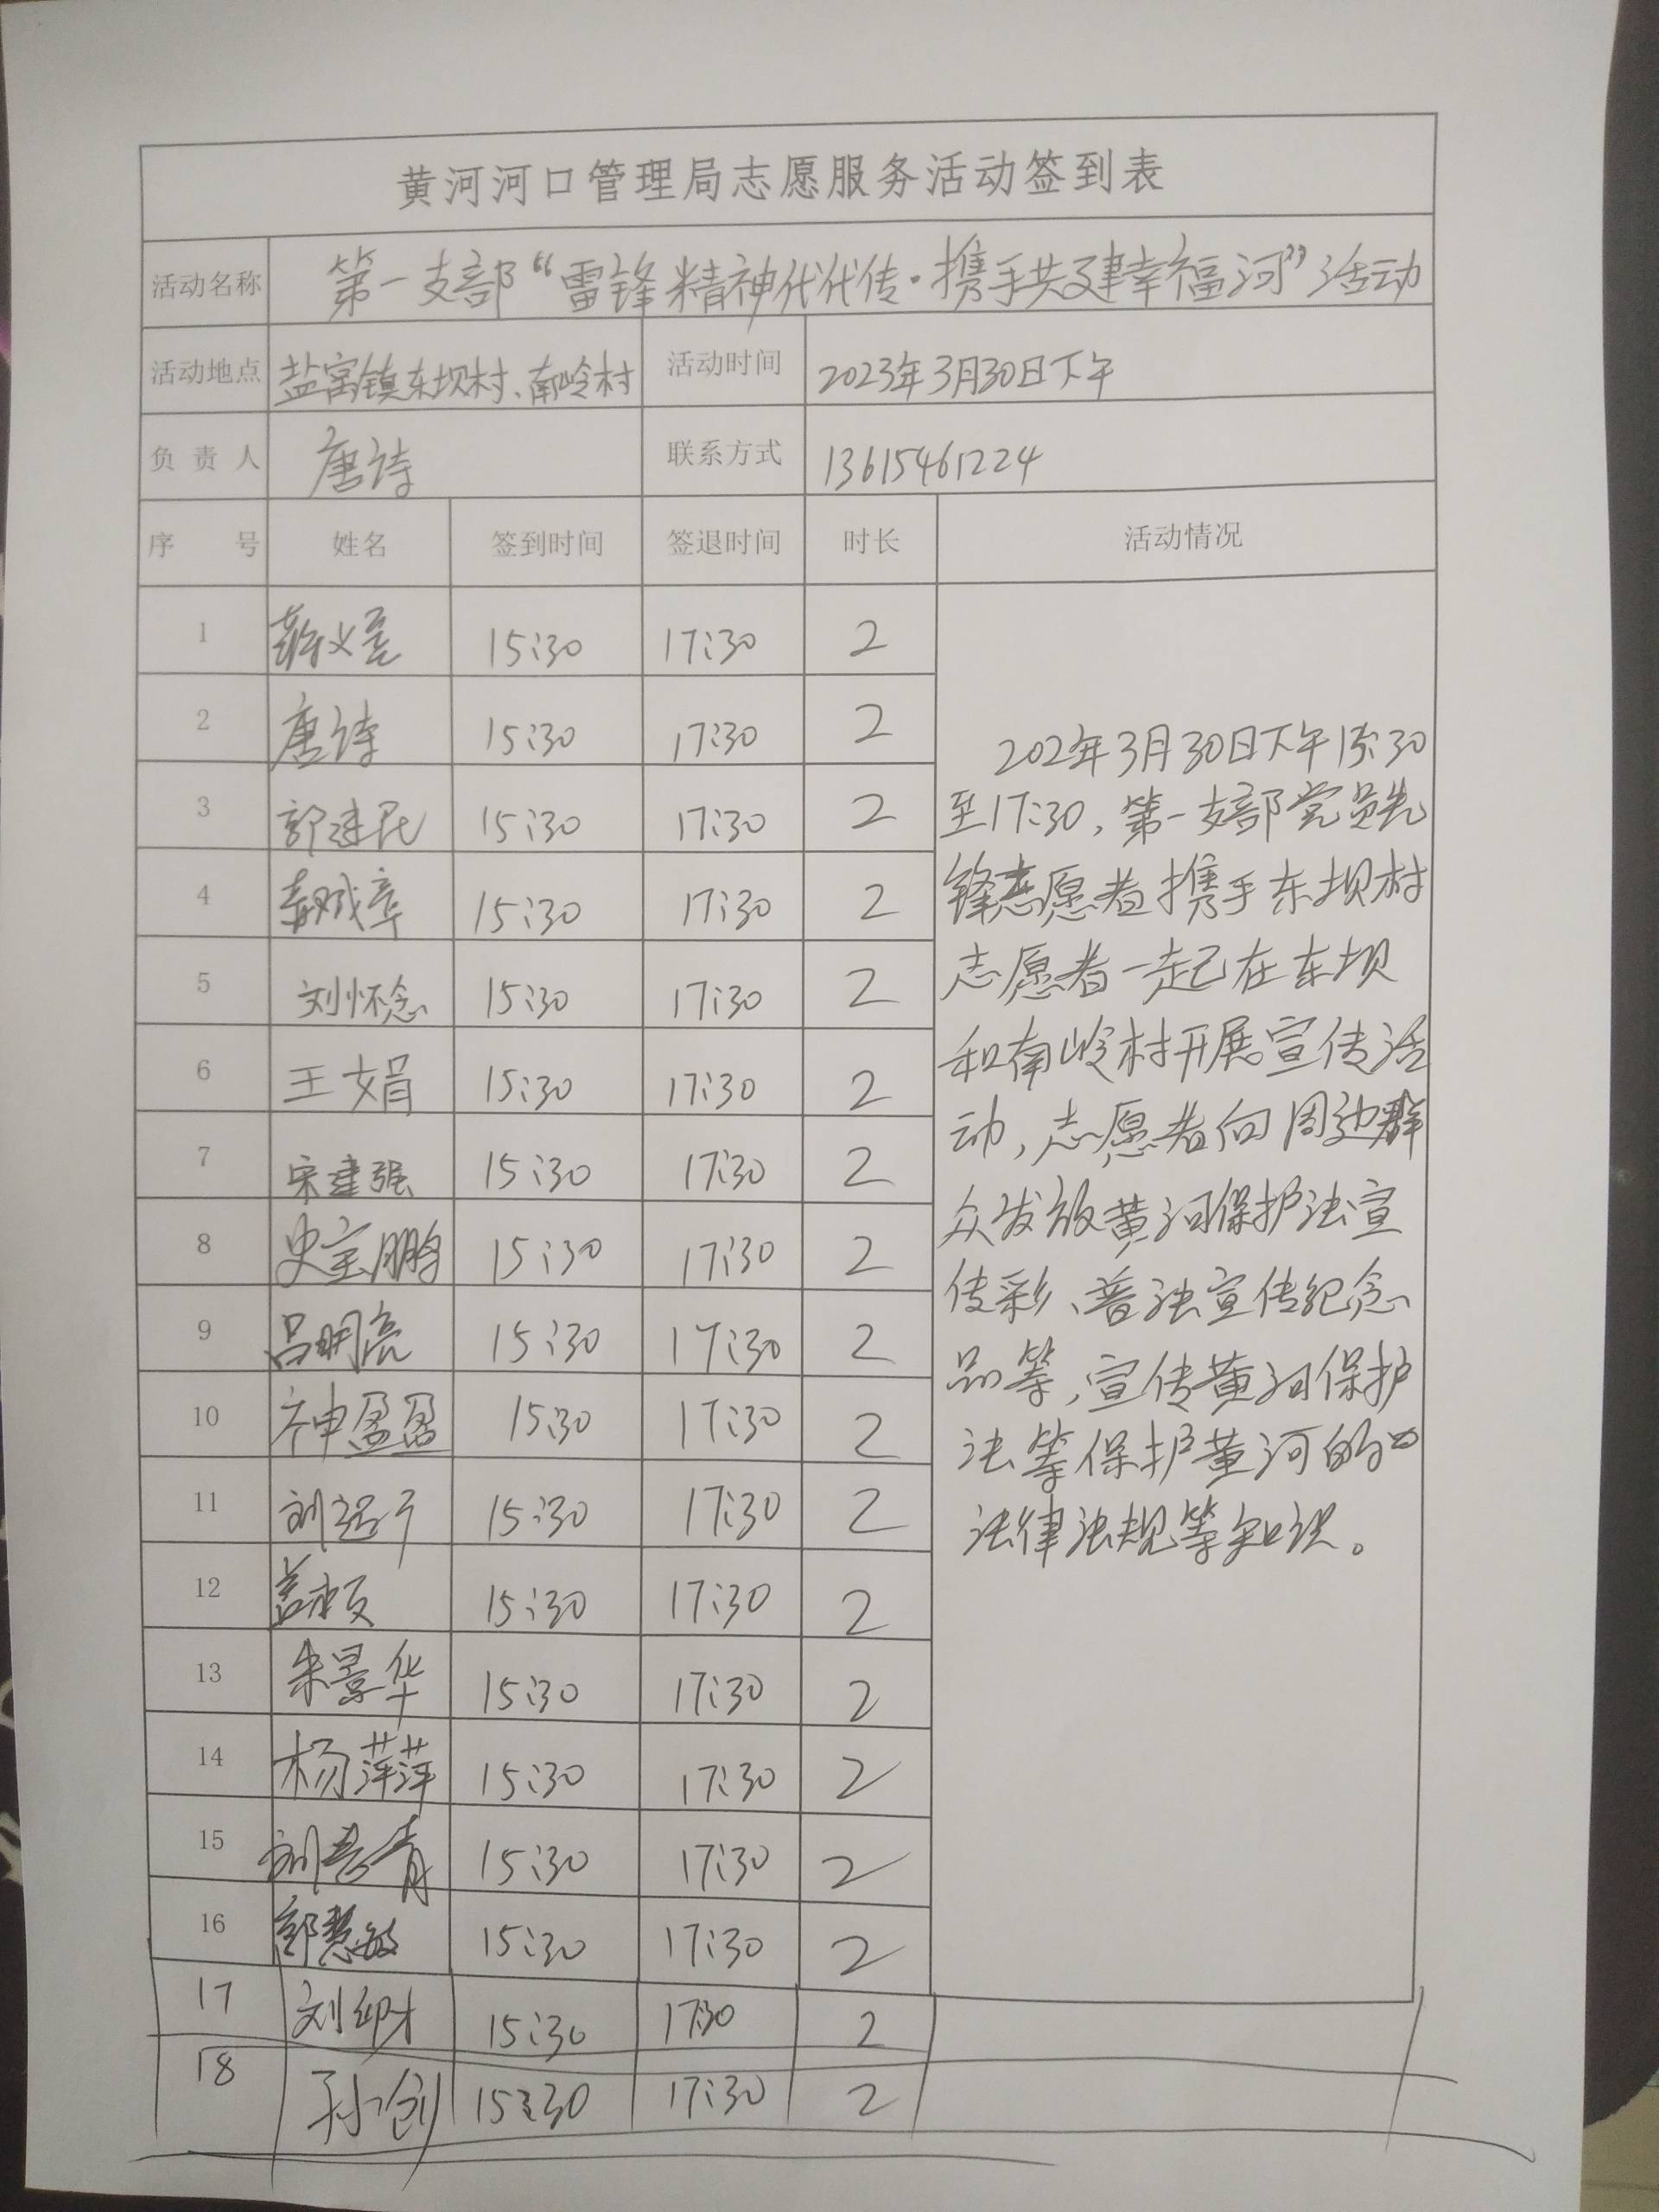 黄河河口管理局志愿服务活动签到表
活动名称 第一支部“雷锋精神代代传·携手共建幸福河”活动
活动地点 盐窝镇东坝村、南岭村 活动时间 2023年3月30日下午
负责人 唐诗 联系方式 13615461224
序号 姓名 签到时间 签退时间 时长 活动情况
1 15:30 17:30 2
2 唐诗 15:30 17:30 2
3 郭建民 15:30 17:30 2
4 15:30 17:30 2
5 刘怀念 15:30 17:30 2
6 王娟 15:30 17:30 2
7 宋建强 15:30 17:30 2
8 史宝鹏 15:30 17:30 2
9 吕明亮 15:30 17:30 2
10 神盈盈 15:30 17:30 2
11 15:30 17:30 2
12 15:30 17:30 2
13 朱景华 15:30 17:30 2
14 杨萍萍 15:30 17:30 2
15 15:30 17:30 2
16 郭慧敏 15:30 17:30 2
17 15:30 17:30 2
18 孙创 15:30 17:30 2
3月30日下午15:30
至17:30,第一支部党员先
锋志愿者携手东坝村
志愿者一起在东坝
和南岭村开展宣传活
动,志愿者向周边群
众发放黄河保护法宣
传彩、普法宣传纪念
品等,宣传黄河保护
法等保护黄河的
法律法规等知识。